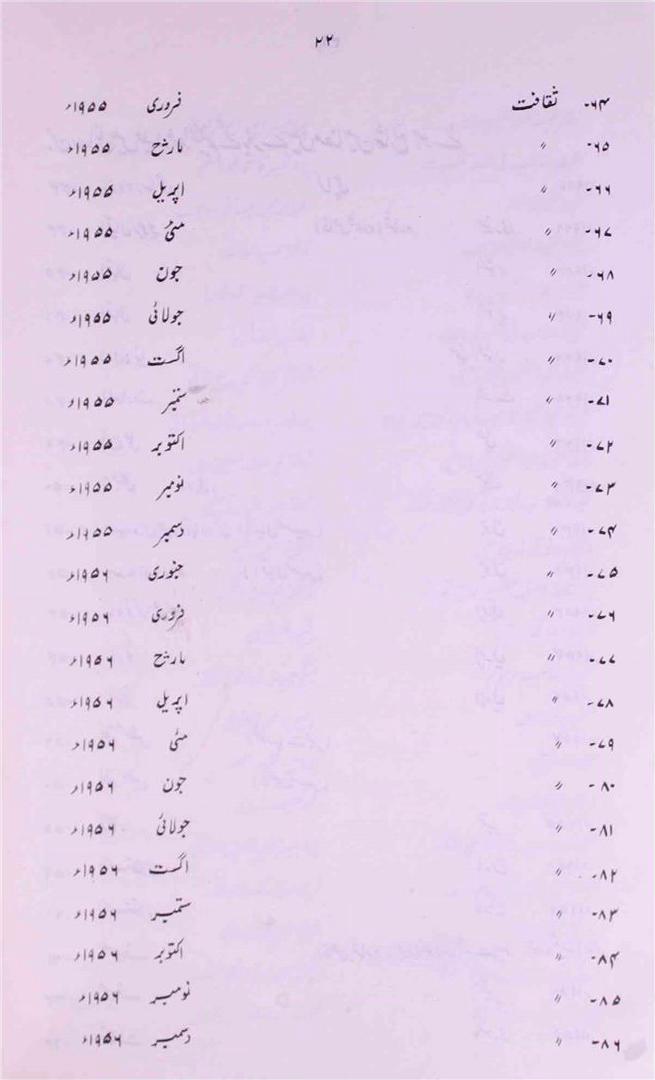 ۲۲
۶۴- ثقافت فروری ۱۹۵۵ء
۶۵- " مارچ ۱۹۵۵ء
۶۶- " اپریل ۱۹۵۵ء
۶۷- " مئی ۱۹۵۵ء
۶۸- " جون ۱۹۵۵ء
۶۹- " جولائی ۱۹۵۵ء
۷۰- " اگست ۱۹۵۵ء
۷۱- " ستمبر ۱۹۵۵ء
۷۲- " اکتوبر ۱۹۵۵ء
۷۳- " نومبر ۱۹۵۵ء
۷۴- " دسمبر ۱۹۵۵ء
۷۵- " جنوری ۱۹۵۶ء
۷۶- " فروری ۱۹۵۶ء
۷۷- " مارچ ۱۹۵۶ء
۷۸- " اپریل ۱۹۵۶ء
۷۹- " مئی ۱۹۵۶ء
۸۰- " جون ۱۹۵۶ء
۸۱- " جولائی ۱۹۵۶ء
۸۲- " اگست ۱۹۵۶ء
۸۳- " ستمبر ۱۹۵۶ء
۸۴- " اکتوبر ۱۹۵۶ء
۸۵- " نومبر ۱۹۵۶ء
۸۶- " دسمبر ۱۹۵۶ء